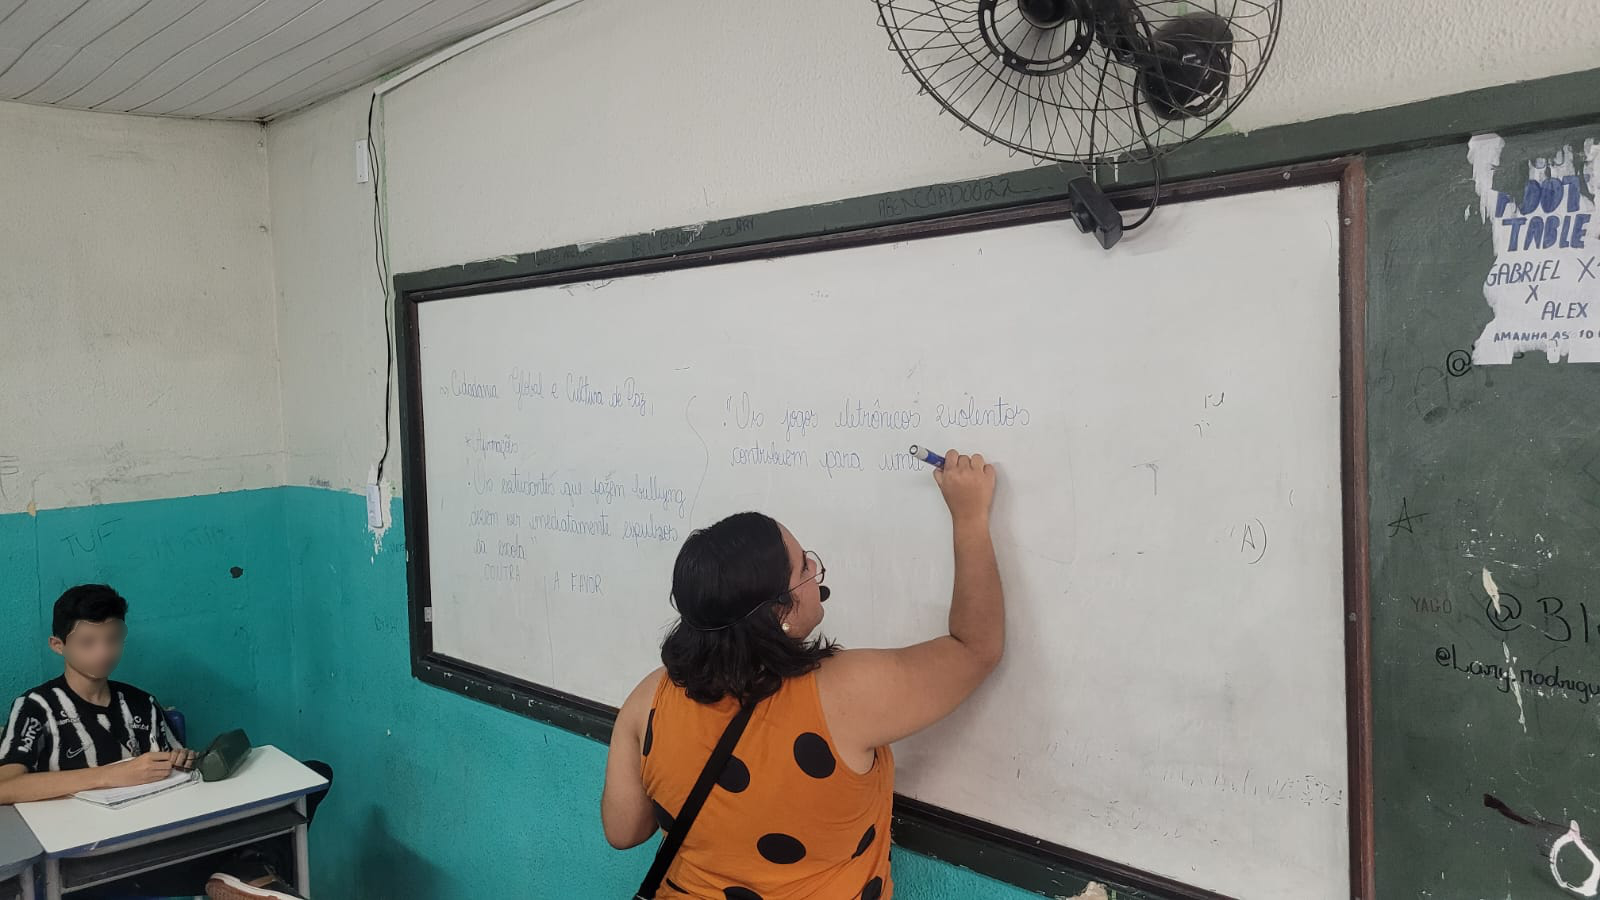 Cidadania Global e Cultura de Paz
* Afirmações
"Os estudantes que fazem bullyng
devem ser imediatamente expulsos
da escola"
CONTRA A FAVOR
"Os jogos eletrônicos violentos
contribuem para uma
A)
ABENÇOADO022
FOOT
TABLE
GABRIEL X
X
ALEX
AMANHA AS 10
TUF
A
YAGO
@Bl
@Lary.rodrigu